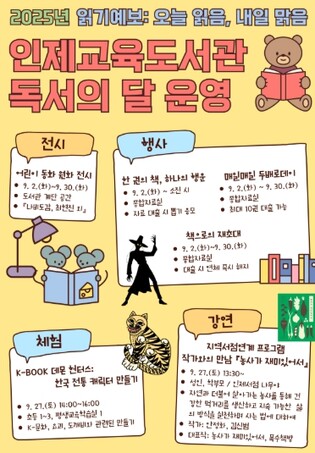 2025년 읽기예보: 오늘 읽음, 내일 맑음
인제교육도서관
독서의 달 운영
전시
어린이 동화 원화 전시
- 9. 2.(화)~9. 30.(화)
- 도서관 계단 공간
행사
한 권의 책, 하나의 행운
- 9. 2.(화) ~ 소진 시
- 종합자료실
- 자료 대출 시 뽑기 응모
매일매일 두배로데이
- 9. 2.(화) ~ 9. 30.(화)
- 종합자료실
- 최대 10권 대출 가능
책으로의 재초대
- 9. 2.(화)~9. 30.(화)
- 종합자료실
- 대출 시 연체 즉시 해지
체험
K-BOOK 데몬 헌터스:
한국 전통 캐릭터 만들기
- 9. 27.(토) 14:00~16:00
- 초등 1~3, 평생교육학습실 1
- K-문화, 호랑이, 도깨비와 관련된 만들기
강연
지역서점연계 프로그램
작가와의 만남 『농사가 재미있어서』
- 9. 27.(토) 13:30~
- 성인, 학부모 / 인제서점 나무야
- 자연과 더불어 살아가는 농사를 통해 건강한 먹거리를 생산하고 지속 가능한 삶의 방식을 실천하며 사는 법에 대한 강연
- 작가: 안정화, 김신범
- 대표작: 농사가 재미있어서, 목수책방